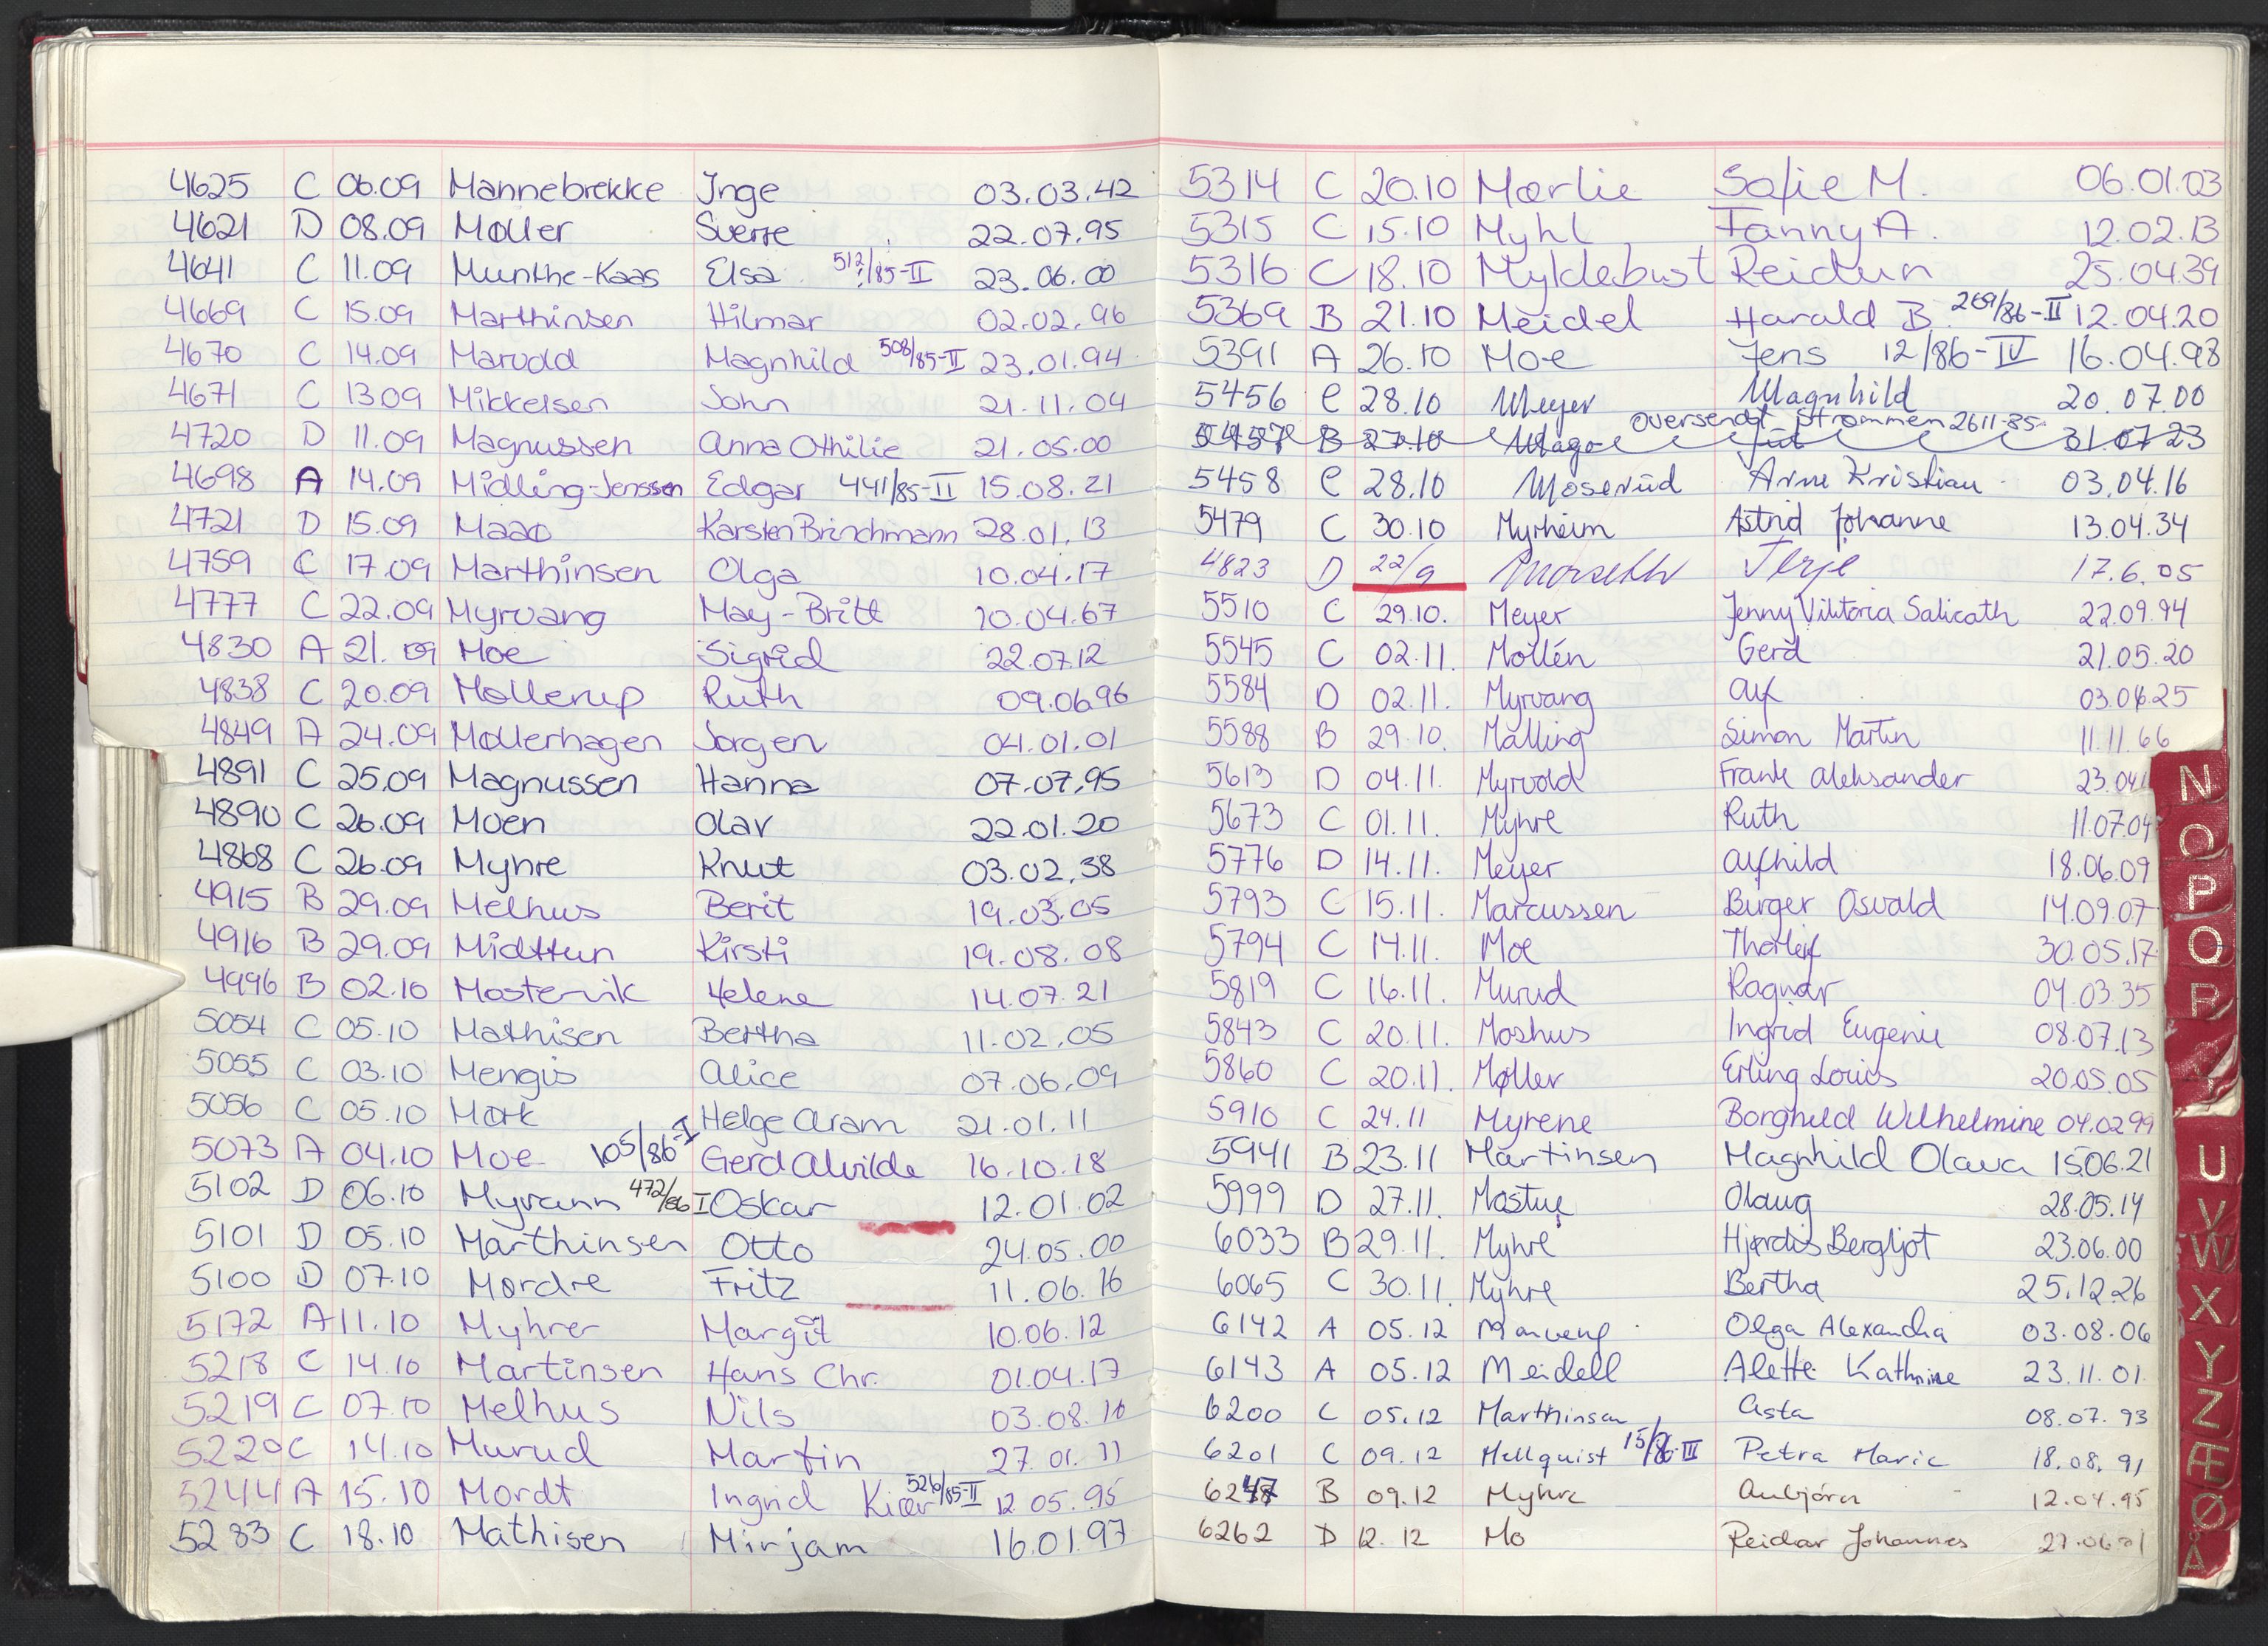 4625 C 06.09 Mannebrekke Inge 03.03.42
4621 D 08.09 Møller Sverre 22.07.95
4641 C 11.09 Munthe-Kaas Elsa 512/85-II 23.06.00
4669 C 15.09 Marthinsen Hilmar 02.02.96
4670 C 14.09 Marvold Magnhild 508/85-II 23.01.94
4671 C 13.09 Mikkelsen John 21.11.04
4720 D 11.09 Magnussen Anna Othilie 21.05.00
4698 A 14.09 Midling-Jenssen Edgar 441/85-II 15.08.21
4721 D 15.09 Maaø Karsten Brinchmann 28.01.13
4759 C 17.09 Marthinsen Olga 10.04.17
4777 C 22.09 Myrvang May-Britt 10.04.67
4830 A 21.09 Moe Sigrid 22.07.12
4838 C 20.09 Møllerup Ruth 09.06.96
4849 A 24.09 Møllerhagen Jørgen 04.01.01
4891 C 25.09 Magnussen Hanna 07.07.95
4890 C 26.09 Moen Olav 22.01.20
4868 C 26.09 Myhre Knut 03.02.38
4915 B 29.09 Melhus Berit 19.03.05
4916 B 29.09 Midttun Kirsti 19.08.08
4996 B 02.10 Mostervik Helene 14.07.21
5054 C 05.10 Mathisen Bertha 11.02.05
5055 C 03.10 Mengis Alice 07.06.09
5056 C 05.10 Mørk Helge Aram 21.01.11
5073 A 04.10 Moe 105/86-I Gerd Alvilde 16.10.18
5102 D 06.10 Myrann 472/86 I Oskar 12.01.02
5101 D 05.10 Marthinsen Otto 24.05.00
5100 D 07.10 Mørdre Fritz 11.06.16
5172 A 11.10 Myhrer Margit 10.06.12
5218 C 14.10 Martinsen Hans Chr. 01.04.17
5219 C 07.10 Melhus Nils 03.08.10
5220 C 14.10 Murud Martin 27.01.11
5244 A 15.10 Mordt Ingrid Kiær 526/85-II 12.05.95
5283 C 18.10 Mathisen Mirjam 16.01.97
5314 C 20.10 Mørlie Sofie M. 06.01.03
5315 C 15.10 Myhl Fanny A. 12.02.13
5316 C 18.10 Myklebust Reidun 25.04.39
5369 B 21.10 Meidel Harald B. 269/86-II 12.04.20
5391 A 26.10 Moe Jens 12/86-IV 16.04.98
5456 C 28.10 Meyer Magnhild 20.07.00
oversendt Strømmen 2611-85
5457 B 27.10 31.07 23
5458 C 28.10 Moserud Arne Kristian 03.04.16
5479 C 30.10 Myrheim Astrid Johanne 13.04.34
4823 D 22/9 Morseth Terje 17.6.05
5510 C 29.10. Meyer Jenny Viktoria Salicath 22.09.94
5545 C 02.11. Mollén Gerd 21.05.20
5584 D 02.11. Myrvang Alf 03.04.25
5588 B 29.10. Malling Simon Martin 11.11.66
5613 D 04.11. Myrvold Frank Aleksander 23.04
5673 C 01.11. Myhre Ruth 11.07.04
5776 D 14.11. Meyer Alfhild 18.06.09
5793 C 15.11. Marcussen Birger Osvald 14.09.07
5794 C 14.11. Moe Thorleif 30.05.17
5819 C 16.11. Murud Ragnar 04.03.35
5843 C 20.11. Moshus Ingrid Eugenie 08.07.13
5860 C 20.11. Møller Erling Louis 20.05.05
5910 C 24.11 Myrene Borghild Wilhelmine 04.02.99
5941 B 23.11 Martinsen Magnhild Olava 15.06.21
5999 D 27.11. Mostue Olaug 28.05.14
6033 B 29.11. Myhre Hjørdis Bergljot 23.06.00
6065 C 30.11. Myhre Bertha 25.12.26
6142 A 05.12 Olga Alexandra 03.08.06
6143 A 05.12 Meidell Alette Kathrine 23.11.01.
6200 C 05.12 Marthinsen Asta 08.07.93
6201 C 09.12 Hellquist 15/86-III Petra Marie 18.08.91
6247 B 09.12 Myhre Aubjørn 12.04.95
6262 D 12.12 Mo Reidar Johannes
N
O
P
Q
R
U
V
W
X
Y
Z
Æ
Ø
Å